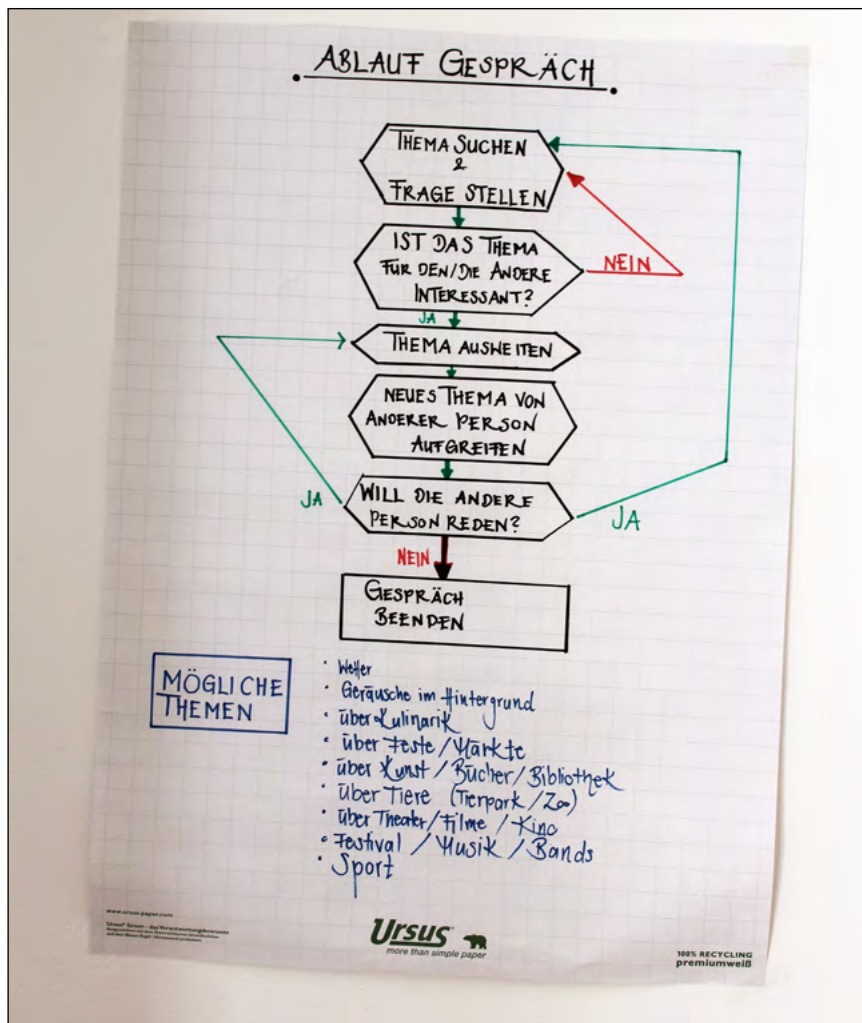 ABLAUF GESPRÄCH
THEMA SUCHEN
&
FRAGE STELLEN
IST DAS THEMA
FÜR DEN/DIE ANDERE
INTERESSANT?
NEIN
JA
THEMA AUSWEITEN
NEUES THEMA VON
ANDERER PERSON
AUFGREIFEN
WILL DIE ANDERE
PERSON REDEN?
JA
JA
NEIN
GESPRÄCH
BEENDEN
MÖGLICHE
THEMEN
• Wetter
• Geräusche im Hintergrund
• über Kulinarik
• über Feste / Märkte
• über Kunst / Bücher / Bibliothek
• über Tiere (Tierpark / Zoo)
• über Theater / Filme / Kino
• Festival / Musik / Bands
• Sport
www.ursus-paper.com
Ursus® Green - das Verantwortungsbewusste
Ursus®
more than simple paper
100% RECYCLING
premiumweiß